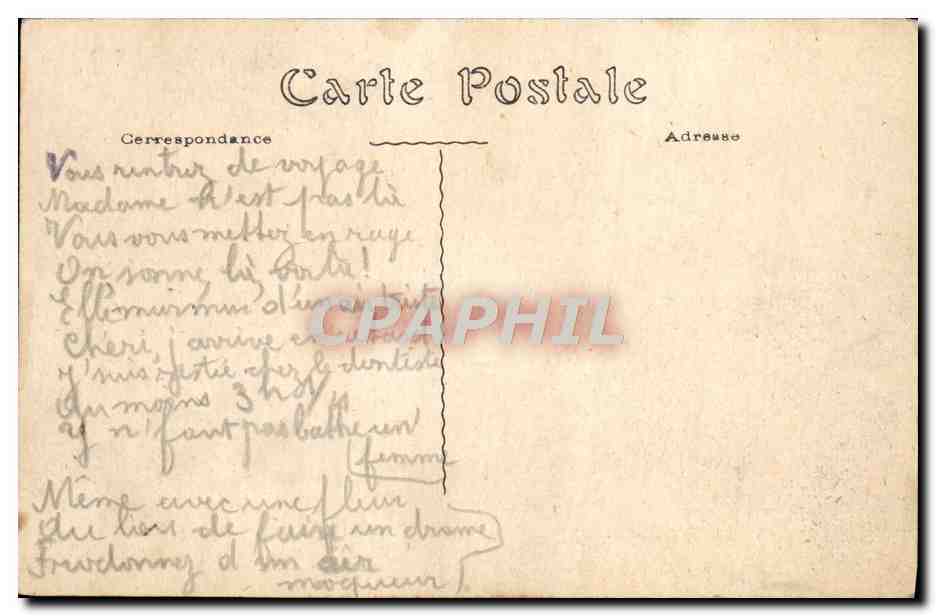 Carte Postale
Correspondance
Adresse
Vous rentrez de voyage
Madame n'est pas là
Vous vous mettez en rage
On sonne, la voilà!
Elle murmure d'un air triste
Chéri, j'arrive en
J'suis restée chez le dentiste
Au moins 3 h
Il n' faut pas battre un'
femme
Même avec une fleur
Au lieu de faire un drame
Fredonnez d'un air
moqueur).
CPAPHIL